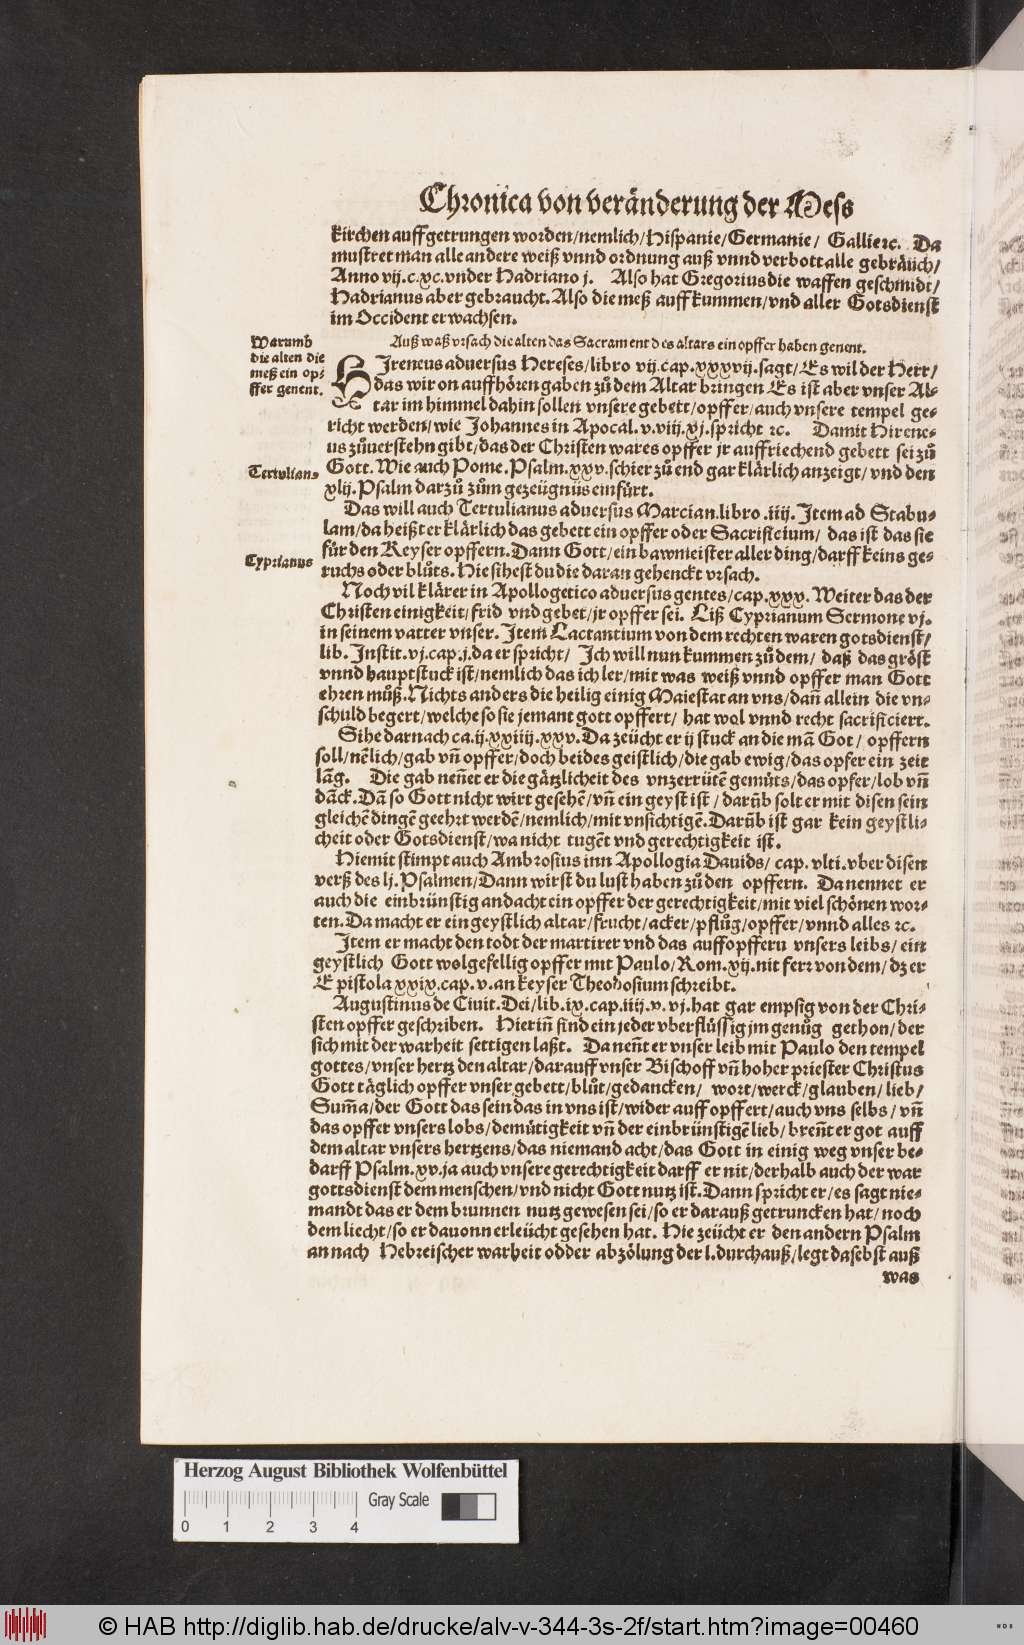 Chronica von veränderung der Mess
kirchen auffgetrungen worden/nemlich/Hispanie/Germanie/ Gallie ꝛc. Da
mustret man alle andere weiß vnnd ordnung auß vnnd verbott alle gebräuch/
Anno vij.c.xc.vnder Hadriano j. Also hat Gregorius die waffen geschmidt/
Hadrianus aber gebraucht. Also die meß auffkummen/vnd aller Gotsdienst
im Occident erwachsen.
Auß waß vrsach die alten das Sacrament des altars ein opffer haben genent.
Warumb
die alten die
meß ein op⸗
ffer genent.
HIreneus aduersus Hereses/libro vij.cap.xxxvij.sagt/Es wil der Herr/
das wir on auffhören gaben zů dem Altar bringen Es ist aber vnser Al⸗
tar im himmel dahin sollen vnsere gebett/opffer/auch vnsere tempel ge⸗
richt werden/wie Johannes in Apocal.v.viij.xj.spricht ꝛc. Damit Hirene⸗
us zůuerstehn gibt/das der Christen wares opffer jr auffriechend gebett sei zů
Gott. Wie auch Pome. Psalm.xxv.schier zů end gar klärlich anzeigt/vnd den
xlij.Psalm darzů zům gezeügnüs einfürt.
Tertulian⸗
Das will auch Tertulianus aduersus Marcian.libro.iiij. Item ad Stabu⸗
lam/da heißt er klärlich das gebett ein opffer oder Sacrificium/ das ist das sie
für den Keyser opffern. Dann Gott/ein bawmeister aller ding/darff keins ge⸗
ruchs oder blůts. Hie sihest du die daran gehenckt vrsach.
Cyprianus
Noch vil klärer in Apollogetico aduersus gentes/cap.xxx. Weiter das der
Christen einigkeit/frid vnd gebet/jr opffer sei. Liß Cyprianum Sermone vj.
in seinem vatter vnser. Item Lactantium von dem rechten waren gotsdienst/
lib. Instit.vj.cap.j.da er spricht/ Ich will nun kummen zů dem/ daß das gröst
vnnd hauptstuck ist/nemlich das ich ler/mit was weiß vnnd opffer man Gott
ehren můß. Nichts anders die heilig einig Maiestat an vns/dañ allein die vn⸗
schuld begert/welche so sie jemant gott opffert/ hat wol vnnd recht sacrificiert.
Sihe darnach ca.ij.xxiiij.xxv. Da zeücht er ij stuck an die mã Got/ opffern
soll/nẽlich/gab vñ opffer/doch beides geistlich/die gab ewig/das opfer ein zeit
lãg. Die gab neñet er die gätzlicheit des vnzerrütẽ gemůts/das opfer/lob vñ
dãck. Dã so Gott nicht wirt gesehẽ/vñ ein geyst ist/ darũb solt er mit disen sein
gleichẽ dingẽ geehrt werdẽ/nemlich/mit vnsichtigẽ. Darũb ist gar kein geystli⸗
cheit oder Gotsdienst/wa nicht tugẽt vnd gerechtigkeit ist.
Hiemit stimpt auch Ambrosius inn Apollogia Dauids/ cap. vlti.vber disen
verß des lj.Psalmen/Dann wirst du lust haben zů den opffern. Da nennet er
auch die einbrünstig andacht ein opffer der gerechtigkeit/mit viel schönen wor⸗
ten. Da macht er ein geystlich altar/frucht/acker/pflůg/opffer/vnnd alles ꝛc.
Item er macht den todt der martirer vnd das auffopfferu vnsers leibs/ ein
geystlich Gott wolgefellig opffer mit Paulo/Rom.xij.nit ferr von dem/dz er
Epistola xxix.cap.v.an keyser Theohosium schreibt.
Augustinus de Ciuit. Dei/lib.ix.cap.iiij.v.vj.hat gar empsig von der Chri⸗
sten opffer geschriben. Hieriñ sind ein jeder vberflüssig jm genůg gethon/der
sich mit der warheit settigen laßt. Da neñt er vnser leib mit Paulo den tempel
gottes/vnser hertz den altar/darauff vnser Bischoff vñ hoher priester Christus
Gott täglich opffer vnser gebett/blůt/gedancken/ wort/werck/glauben/lieb/
Sum̃a/der Gott das sein das in vns ist/wider auffopffert/auch vns selbs/ vñ
das opffer vnsers lobs/demůtigkeit vñ der einbrünstigẽ lieb/breñt er got auff
dem altar vnsers hertzens/das niemand acht/das Gott in einig weg vnser be⸗
darff Psalm.xv.ja auch vnsere gerechtigkeit darff er nit/derhalb auch der war
gottsdienst dem menschen/vnd nicht Gott nutz ist. Dann spricht er/es sagt nie⸗
mandt das er dem brunnen nutz gewesen sei/so er darauß getruncken hat/noch
dem liecht/so er dauon erleücht gesehen hat. Hie zeücht er den andern Psalm
an nach Hebreischer warheit odder abzölung der l.durchauß/legt dasebst auß
was
Herzog August Bibliothek Wolfenbüttel
Gray Scale
0 1 2 3 4
© HAB http://diglib.hab.de/drucke/alv-v-344-3s-2f/start.htm?image=00460